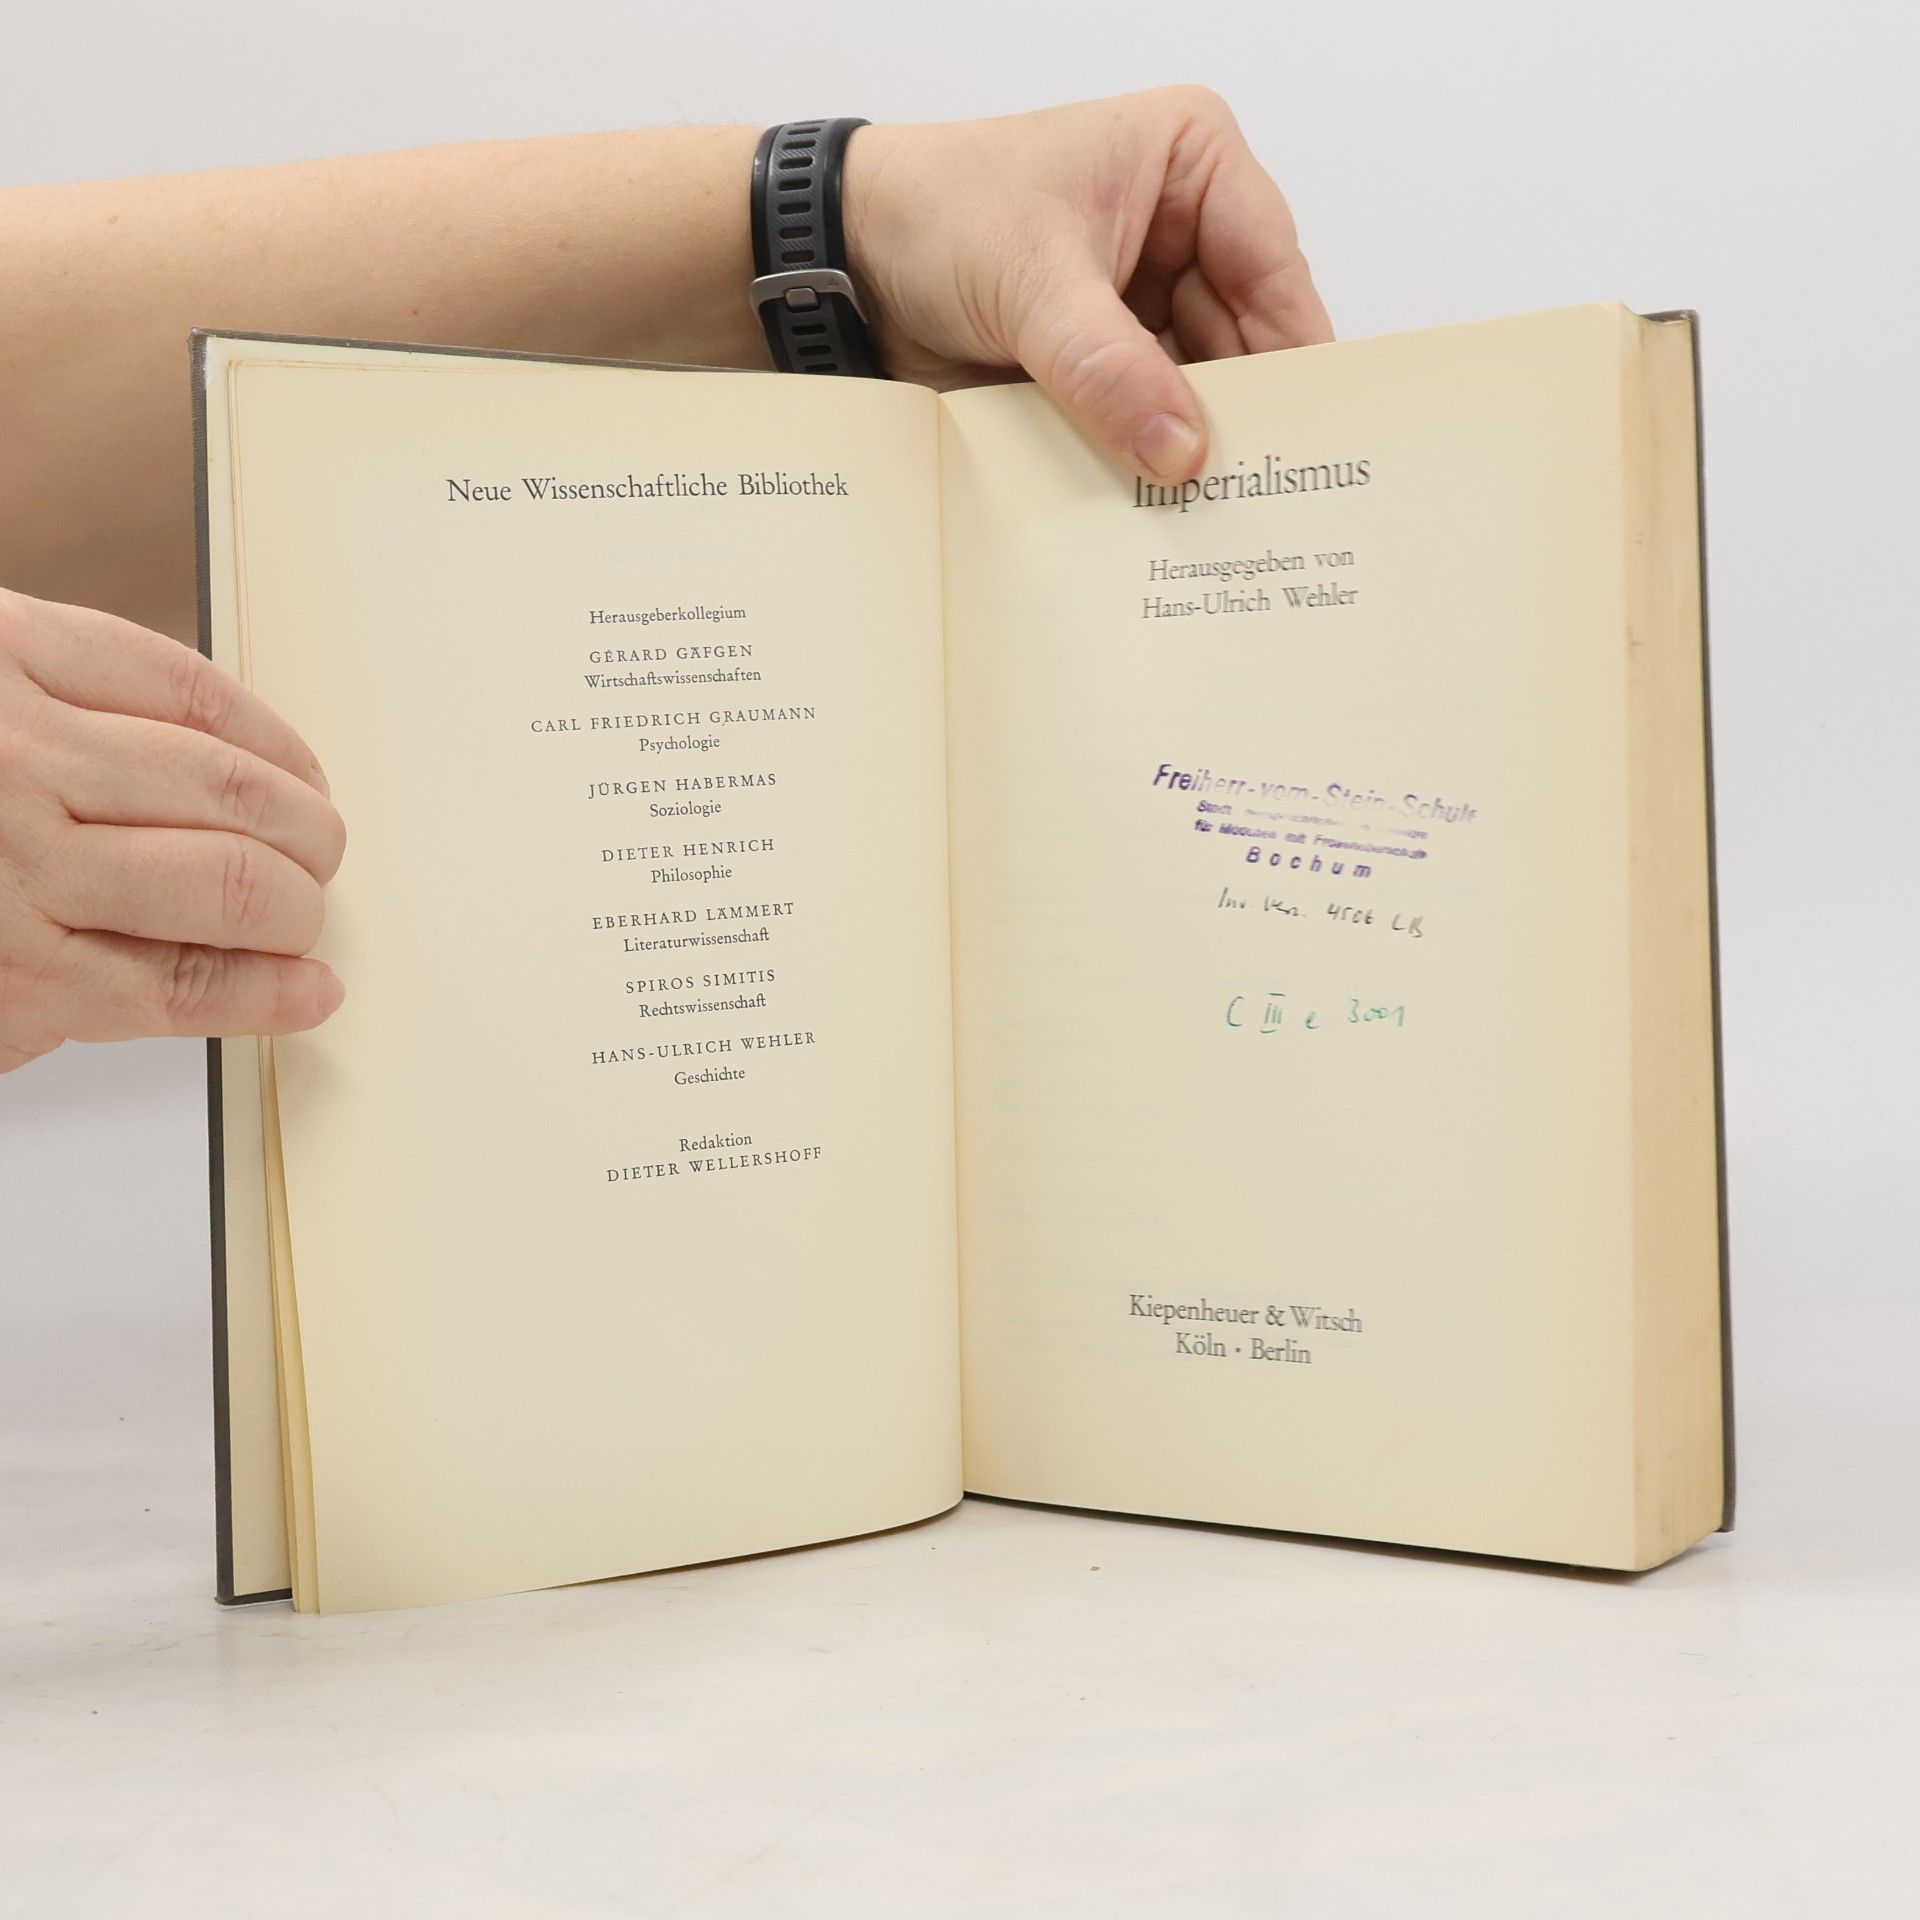 Neue Wissenschaftliche Bibliothek
Herausgeberkollegium
GÉRARD GÄFGEN
Wirtschaftswissenschaften
CARL FRIEDRICH GRAUMANN
Psychologie
JÜRGEN HABERMAS
Soziologie
DIETER HENRICH
Philosophie
EBERHARD LÄMMERT
Literaturwissenschaft
SPIROS SIMITIS
Rechtswissenschaft
HANS-ULRICH WEHLER
Geschichte
Redaktion
DIETER WELLERSHOFF
Imperialismus
Herausgegeben von
Hans-Ulrich Wehler
Freiherr-vom-Stein-Schule
für Mädchen mit
Bochum
Inv. 4506 LB
C III e 3001
Kiepenheuer & Witsch
Köln · Berlin